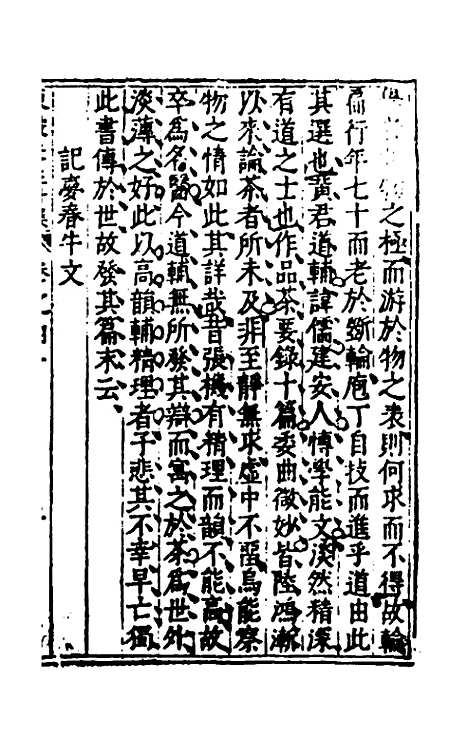 物之極而游於物之表則何求而不得故輪
扁行年七十而老於斲輪庖丁自技而進乎道由此
其選也黃君道輔諱儒建安人博學能文淡然精深
有道之士也作品茶要錄十篇委曲微妙皆陸鴻漸
以來論茶者所未及非至靜無求虛中不留烏能察
物之情如此其詳哉昔張機有精理而韻不能高故
卒為名醫今道輔無所發其辯而寓之於茶為世外
淡薄之好此以高韻輔精理者予悲其不幸早亡獨
此書傳於世故發其篇末云
記夢春牛文